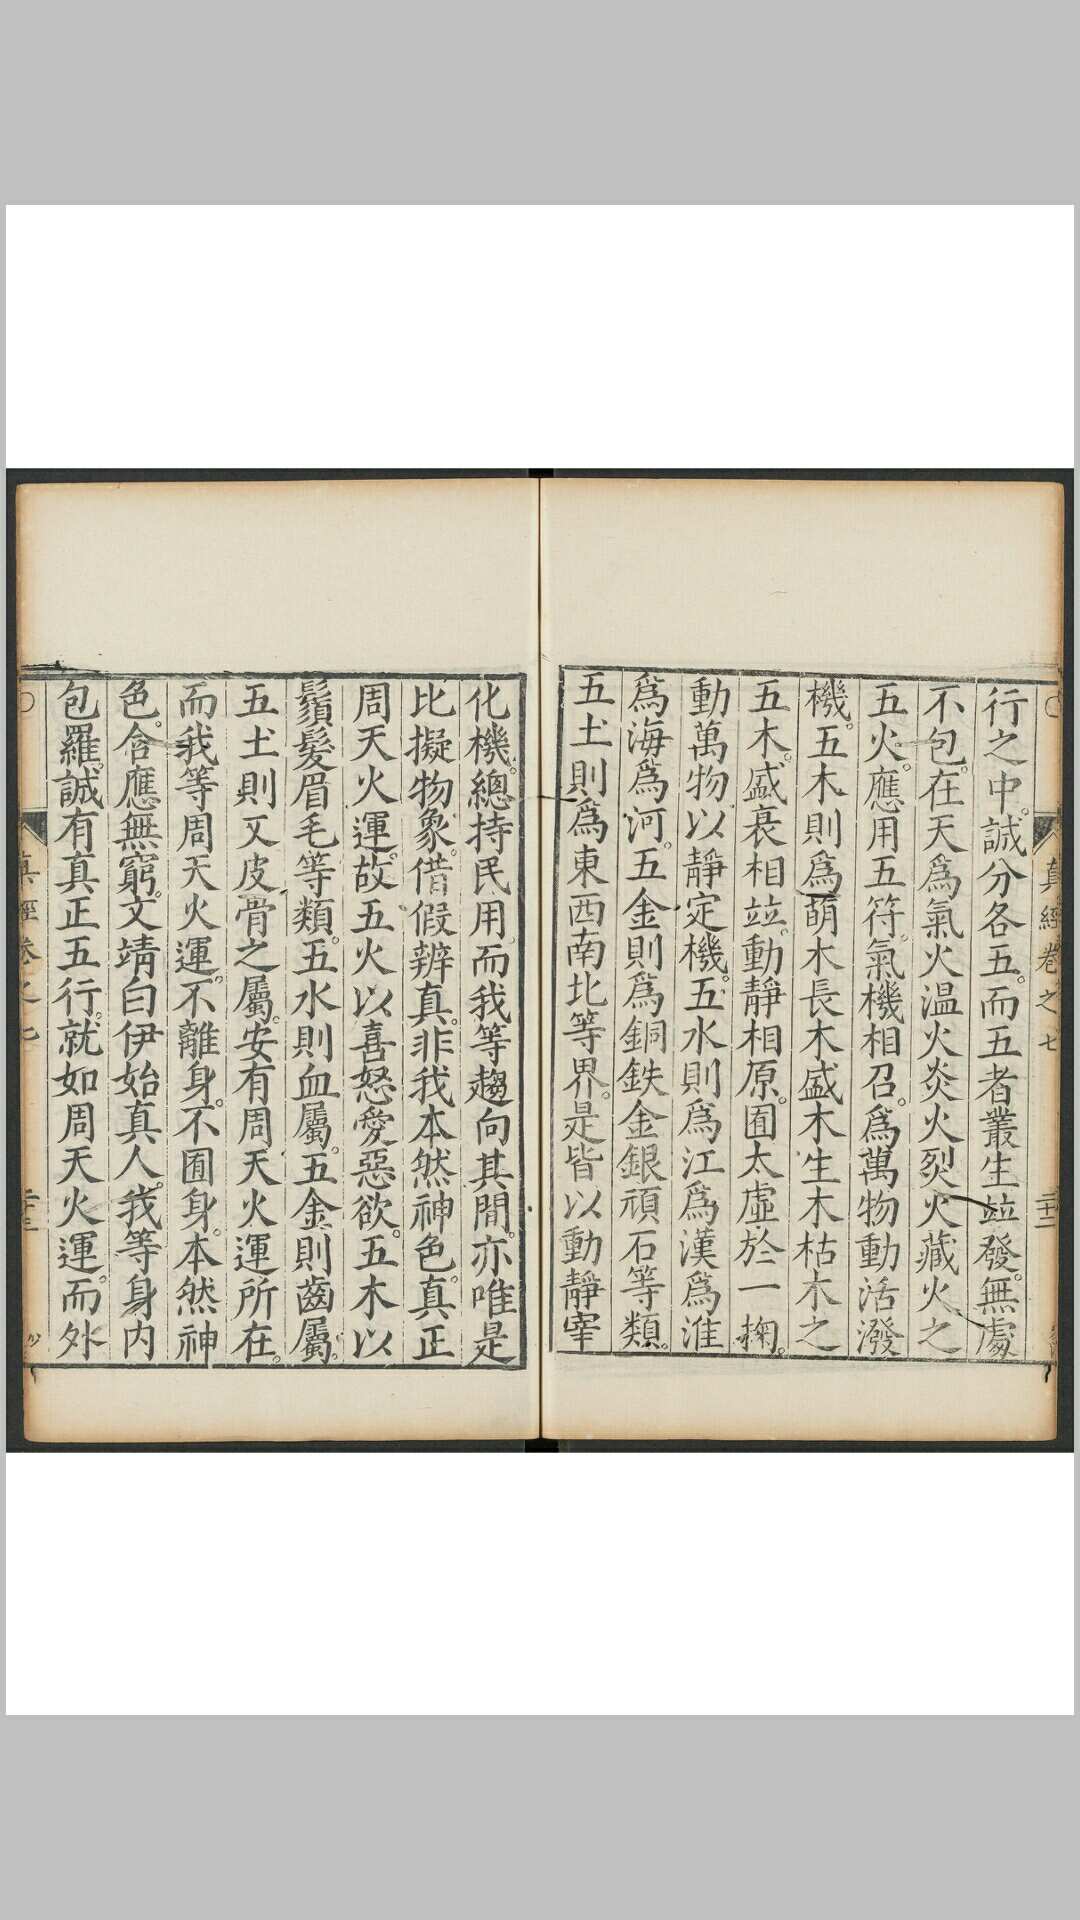 真經卷之七 二十二
行之中。誠分各五。而五者叢生竝發。無處
不包。在天爲氣火溫火炎火烈火藏火之
五火。應用五符。氣機相召。爲萬物動活潑
機。五木則爲萌木長木盛木生木枯木之
五木。盛衰相竝。動靜相原。囿太虛於一掬。
動萬物以靜定機。五水則爲江爲漢爲淮
爲海爲河。五金則爲銅鉄金銀頑石等類。
五土則爲東西南北等界。是皆以動靜宰
化機。總持民用。而我等趨向其間。亦唯是
比擬物象。借假辨真。非我本然神色。真正
周天火運。故五火以喜怒愛惡欲。五木以
鬚髮眉毛等類。五水則血屬。五金則齒屬。
五土則又皮骨之屬。安有周天火運所在。
而我等周天火運。不離身。不囿身。本然神
色。含應無窮。文靖曰伊始真人。我等身内
包羅。誠有真正五行。就如周天火運。而外
真經卷之七 二十三